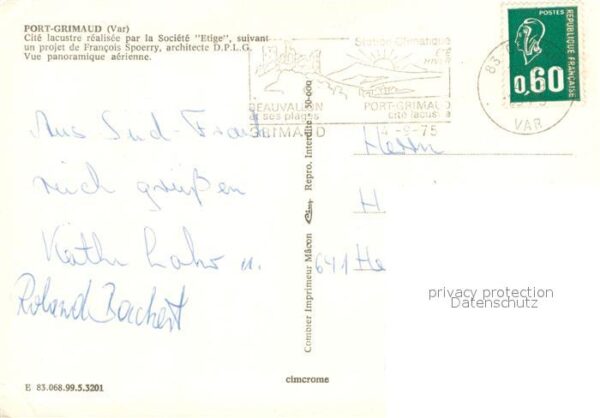 PORT-GRIMAUD (Var)
Cité lacustre réalisée par la Société "Etige", suivant
un projet de François Spoerry, architecte D.P.L.G.
Vue panoramique aérienne.
Station Climatique
été
hiver
BEAUVALLON
et ses plages
GRIMAUD
PORT-GRIMAUD
cité lacustre
4-9-75
83
VAR
POSTES
REPUBLIQUE FRANÇAISE
0,60
Aus Süd-Frank
reich grüßen
Käthe u.
Roland Bachert
Herrn
H
641 He
Combier Imprimeur Mâcon Repro. Interdite - 30-009
privacy protection
Datenschutz
cimcrome
E 83.068.99.5.3201